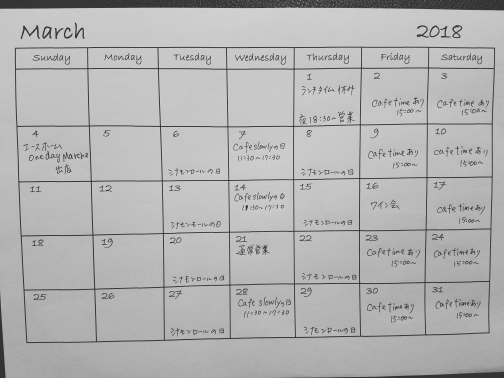 March 2018
Sunday Monday Tuesday Wednesday Thursday Friday Saturday
1 2 3
ランチタイム 休み
夜18:30~営業
Cafe time あり
15:00~
Cafe time あり
15:00~
4 5 6 7 8 9 10
エースホーム
One day Marche
出店
シナモンロールの日
Cafe slowlyの日
11:30~17:30
シナモンロールの日
Cafe time あり
15:00~
Cafe time あり
15:00~
11 12 13 14 15 16 17
シナモンロールの日
Cafe slowlyの日
11:30~17:30
シナモンロールの日
ワイン会
Cafe time あり
15:00~
18 19 20 21 22 23 24
シナモンロールの日
通常営業
シナモンロールの日
Cafe time あり
15:00~
Cafe time あり
15:00~
25 26 27 28 29 30 31
シナモンロールの日
Cafe slowlyの日
11:30~17:30
シナモンロールの日
Cafe time あり
15:00~
Cafe time あり
15:00~